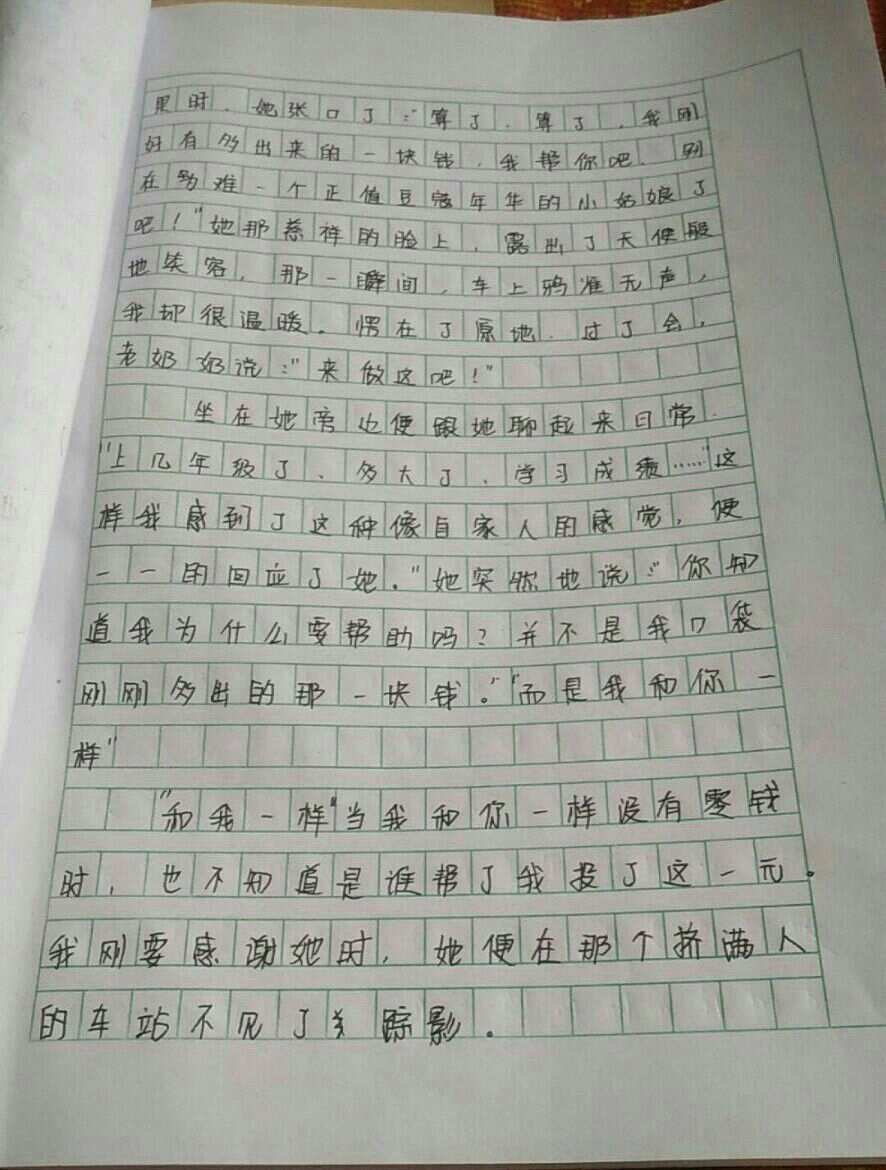 果时，她张口了："算了，算了，我刚
好有多出来的一块钱，我帮你吧，别
在为难一个正值豆寇年华的小姑娘了
吧！"她那慈祥的脸上，露出了天使般
地笑容，那一瞬间，车上鸦准无声，
我却很温暖。愣在了原地，过了会，
老奶奶说："来做这吧！"
坐在她旁边便跟她聊起来日常.
"上几年级了、多大了、学习成绩……"这
样我感到了这种像自家人的感觉，便
一一的回应了她."她突然地说："你知
道我为什么要帮助吗？并不是我口袋
刚刚多出的那一块钱。""而是我和你一
样"
"和我一样"当我和你一样没有零钱
时，也不知道是谁帮了我投了这一元.
我刚要感谢她时，她便在那个挤满人
的车站不见了踪影.